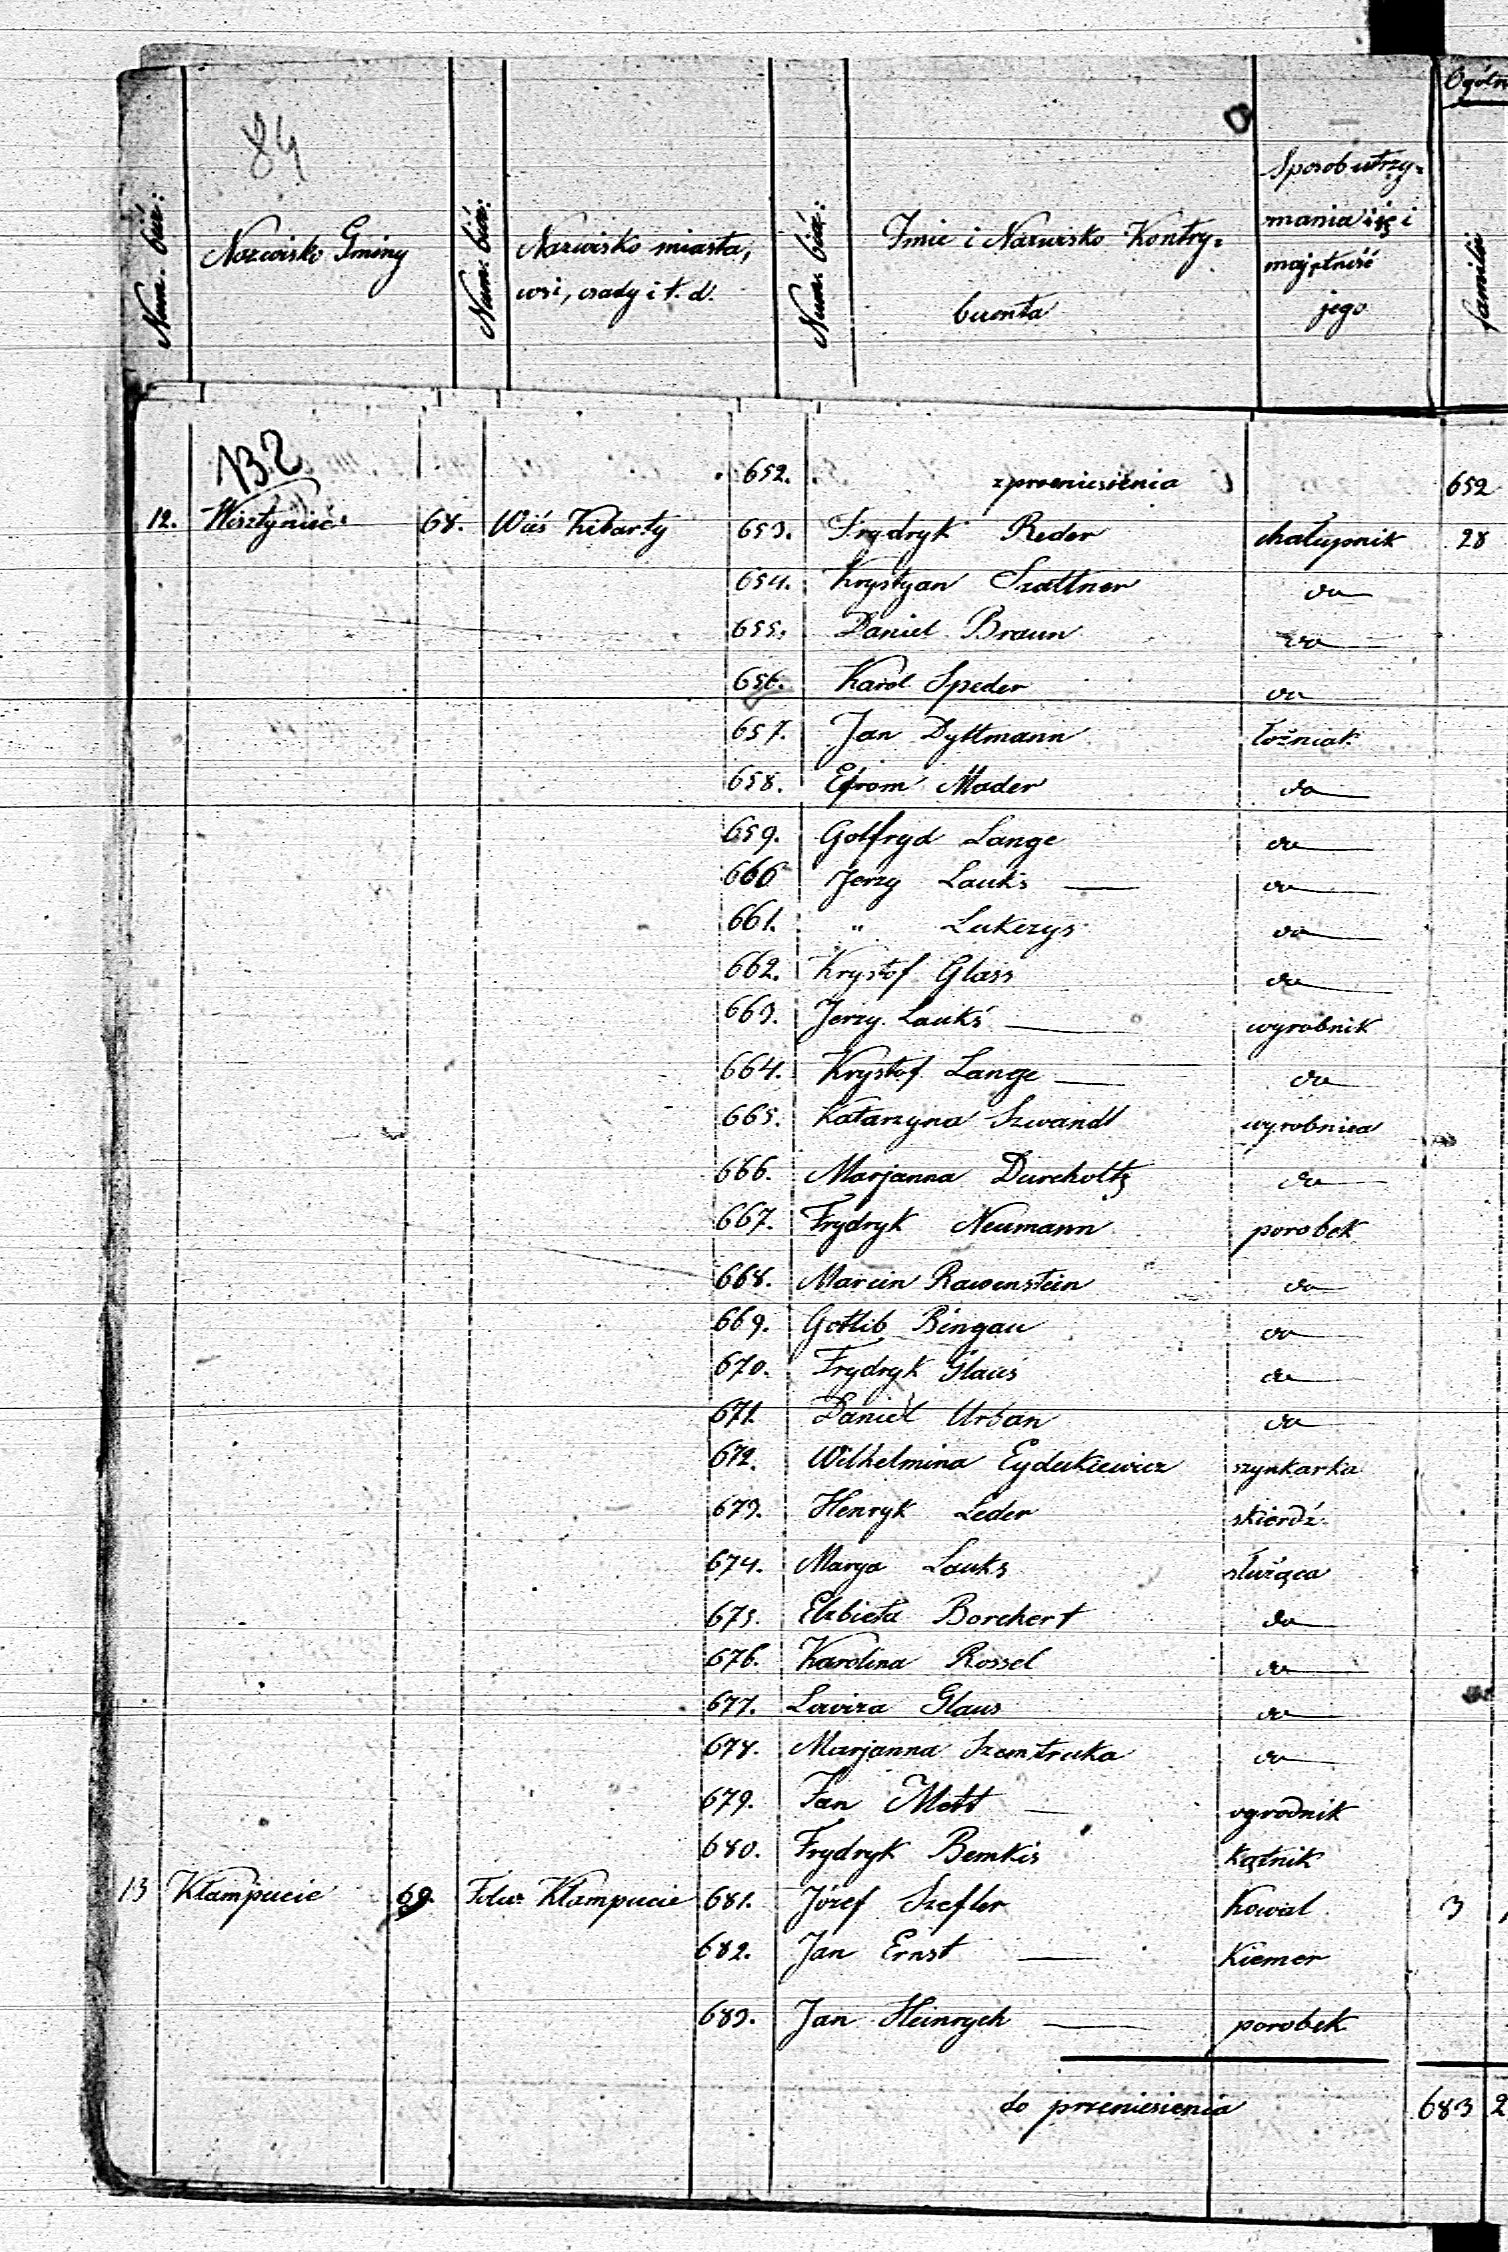 84
Ogóln
Num. bież:
Nazwisko Gminy
Num. bież:
Nazwisko miasta,
wsi, osady i t. d.
Num. bież:
Imie i Nazwisko Kontry-
buenta
Sposob utrzy-
mania się i
majętność
jego
familii
132
652. z przeniesienia 652
12. Wisztyniec 68. Wieś Kibarty 653. Frydryk Reder chałupnik 28
654. Krystyan Szattner do
655. Daniel Braun do
656. Karol Speder do
657. Jan Dyttmann łoźniak
658. Efrom Mader do
659. Golfryd Lange do
660 Jerzy Lauks do
661. " Lukezys do
662. Krysztof Glass do
663. Jerzy Lauks wyrobnik
664. Krysztof Lange do
665. Katarzyna Szwandt wyrobnica
666. Marjanna Durcholtz do
667. Frydryk Neumann porobek
668. Marcin Rawenstein do
669. Gotlib Bingau do
670. Frydryk Glaus do
671. Daniel Urban do
672. Wilhelmina Eydukiewicz szynkarka
673. Henryk Leder skierdź
674. Marya Lauks służąca
675. Elzbieta Borchert do
676. Karolina Rossel do
677. Lowiza Glaus do
678. Marjanna Szemtruka do
679. Jan Mett ogrodnik
680. Frydryk Bemkis kątnik
13 Kłampucie 69. Folw. Kłampucie 681. Józef Szefler Kowal 3
682. Jan Ernst Kiemer
683. Jan Heinrych porobek
do przeniesienia 683 2